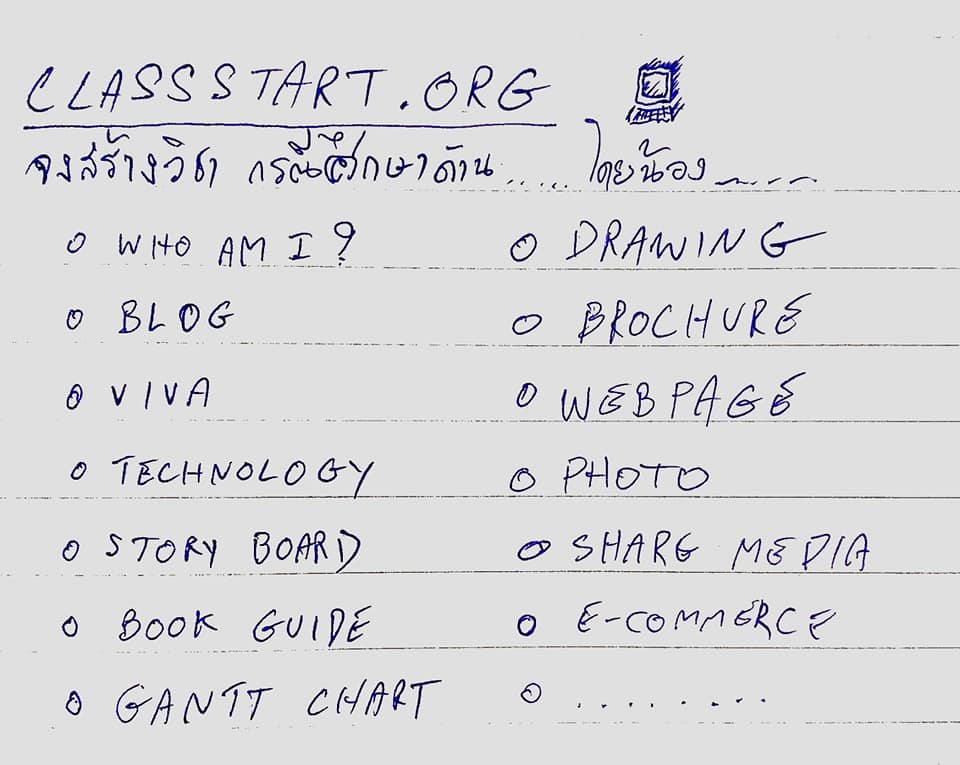 CLASSSTART.ORG
จงสร้างวิชา กรณีศึกษาด้าน...... โดยน้อง........
○ WHO AM I?
○ BLOG
○ VIVA
○ TECHNOLOGY
○ STORY BOARD
○ BOOK GUIDE
○ GANTT CHART
○ DRAWING
○ BROCHURE
○ WEBPAGE
○ PHOTO
○ SHARE MEDIA
○ E-COMMERCE
○ ........